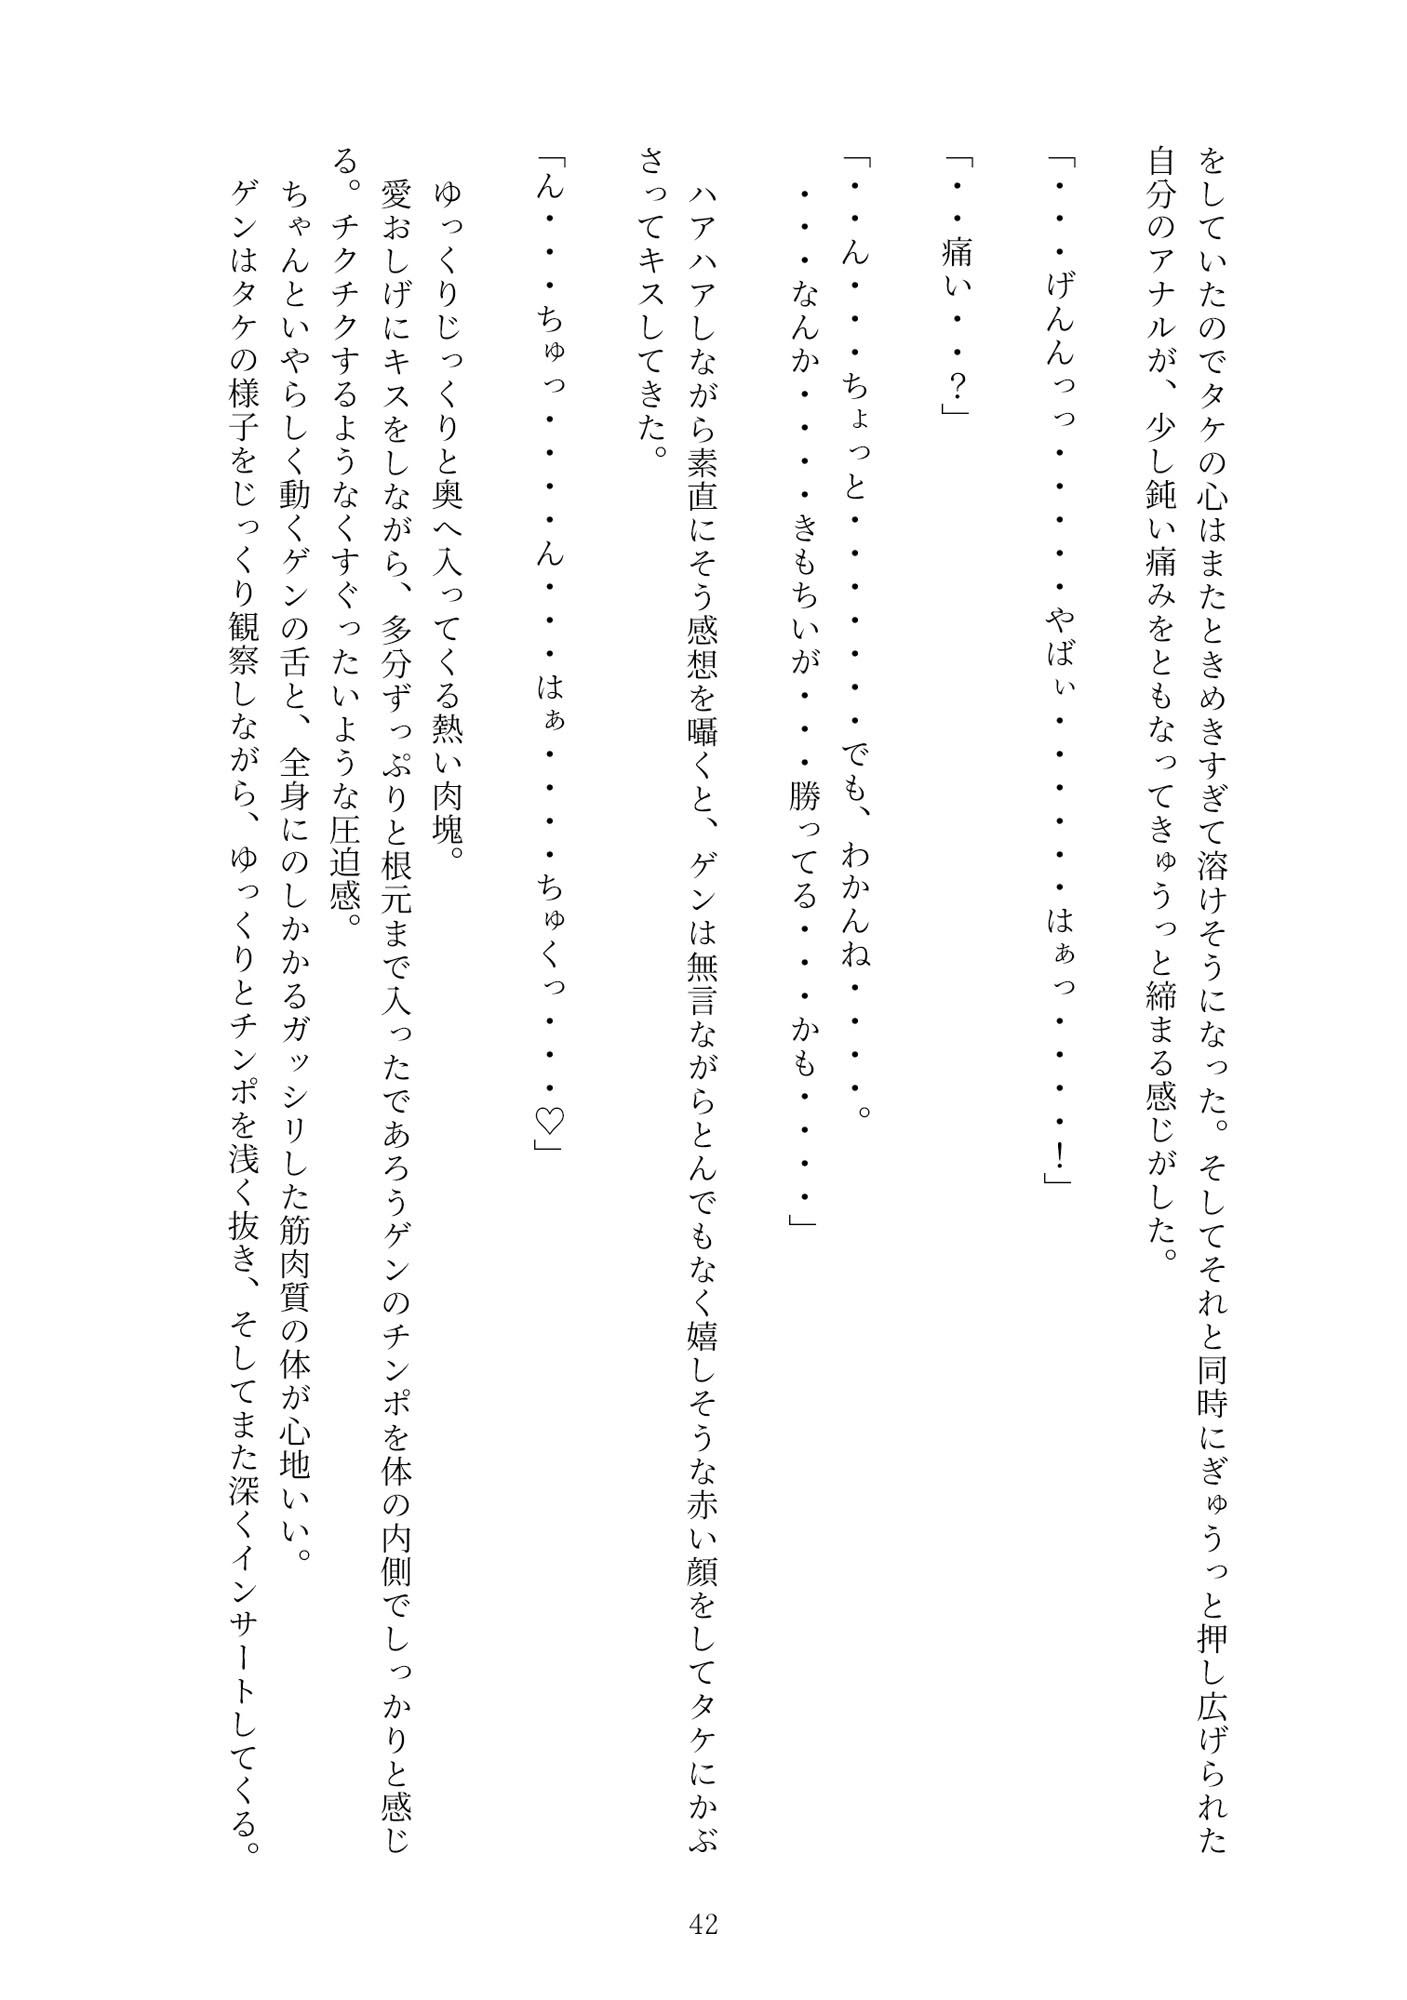 をしていたのでタケの心はまたときめきすぎて溶けそうになった。そしてそれと同時にぎゅうっと押し広げられた
自分のアナルが、少し鈍い痛みをともなってきゅうっと締まる感じがした。
「・・・げんんっっ・・・・・やばぃ・・・・・・はぁっ・・・・！」
「・・痛い・・？」
「・・ん・・・ちょっと・・・・・・・でも、わかんね・・・・。
・・・なんか・・・・きもちいが・・・勝ってる・・・かも・・・・」
ハアハアしながら素直にそう感想を囁くと、ゲンは無言ながらとんでもなく嬉しそうな赤い顔をしてタケにかぶ
さってキスしてきた。
「ん・・・ちゅっ・・・・ん・・・はぁ・・・・ちゅくっ・・・♡」
ゆっくりじっくりと奥へ入ってくる熱い肉塊。
愛おしげにキスをしながら、多分ずっぷりと根元まで入ったであろうゲンのチンポを体の内側でしっかりと感じ
る。チクチクするようなくすぐったいような圧迫感。
ちゃんといやらしく動くゲンの舌と、全身にのしかかるガッシリした筋肉質の体が心地いい。
ゲンはタケの様子をじっくり観察しながら、ゆっくりとチンポを浅く抜き、そしてまた深くインサートしてくる。
42